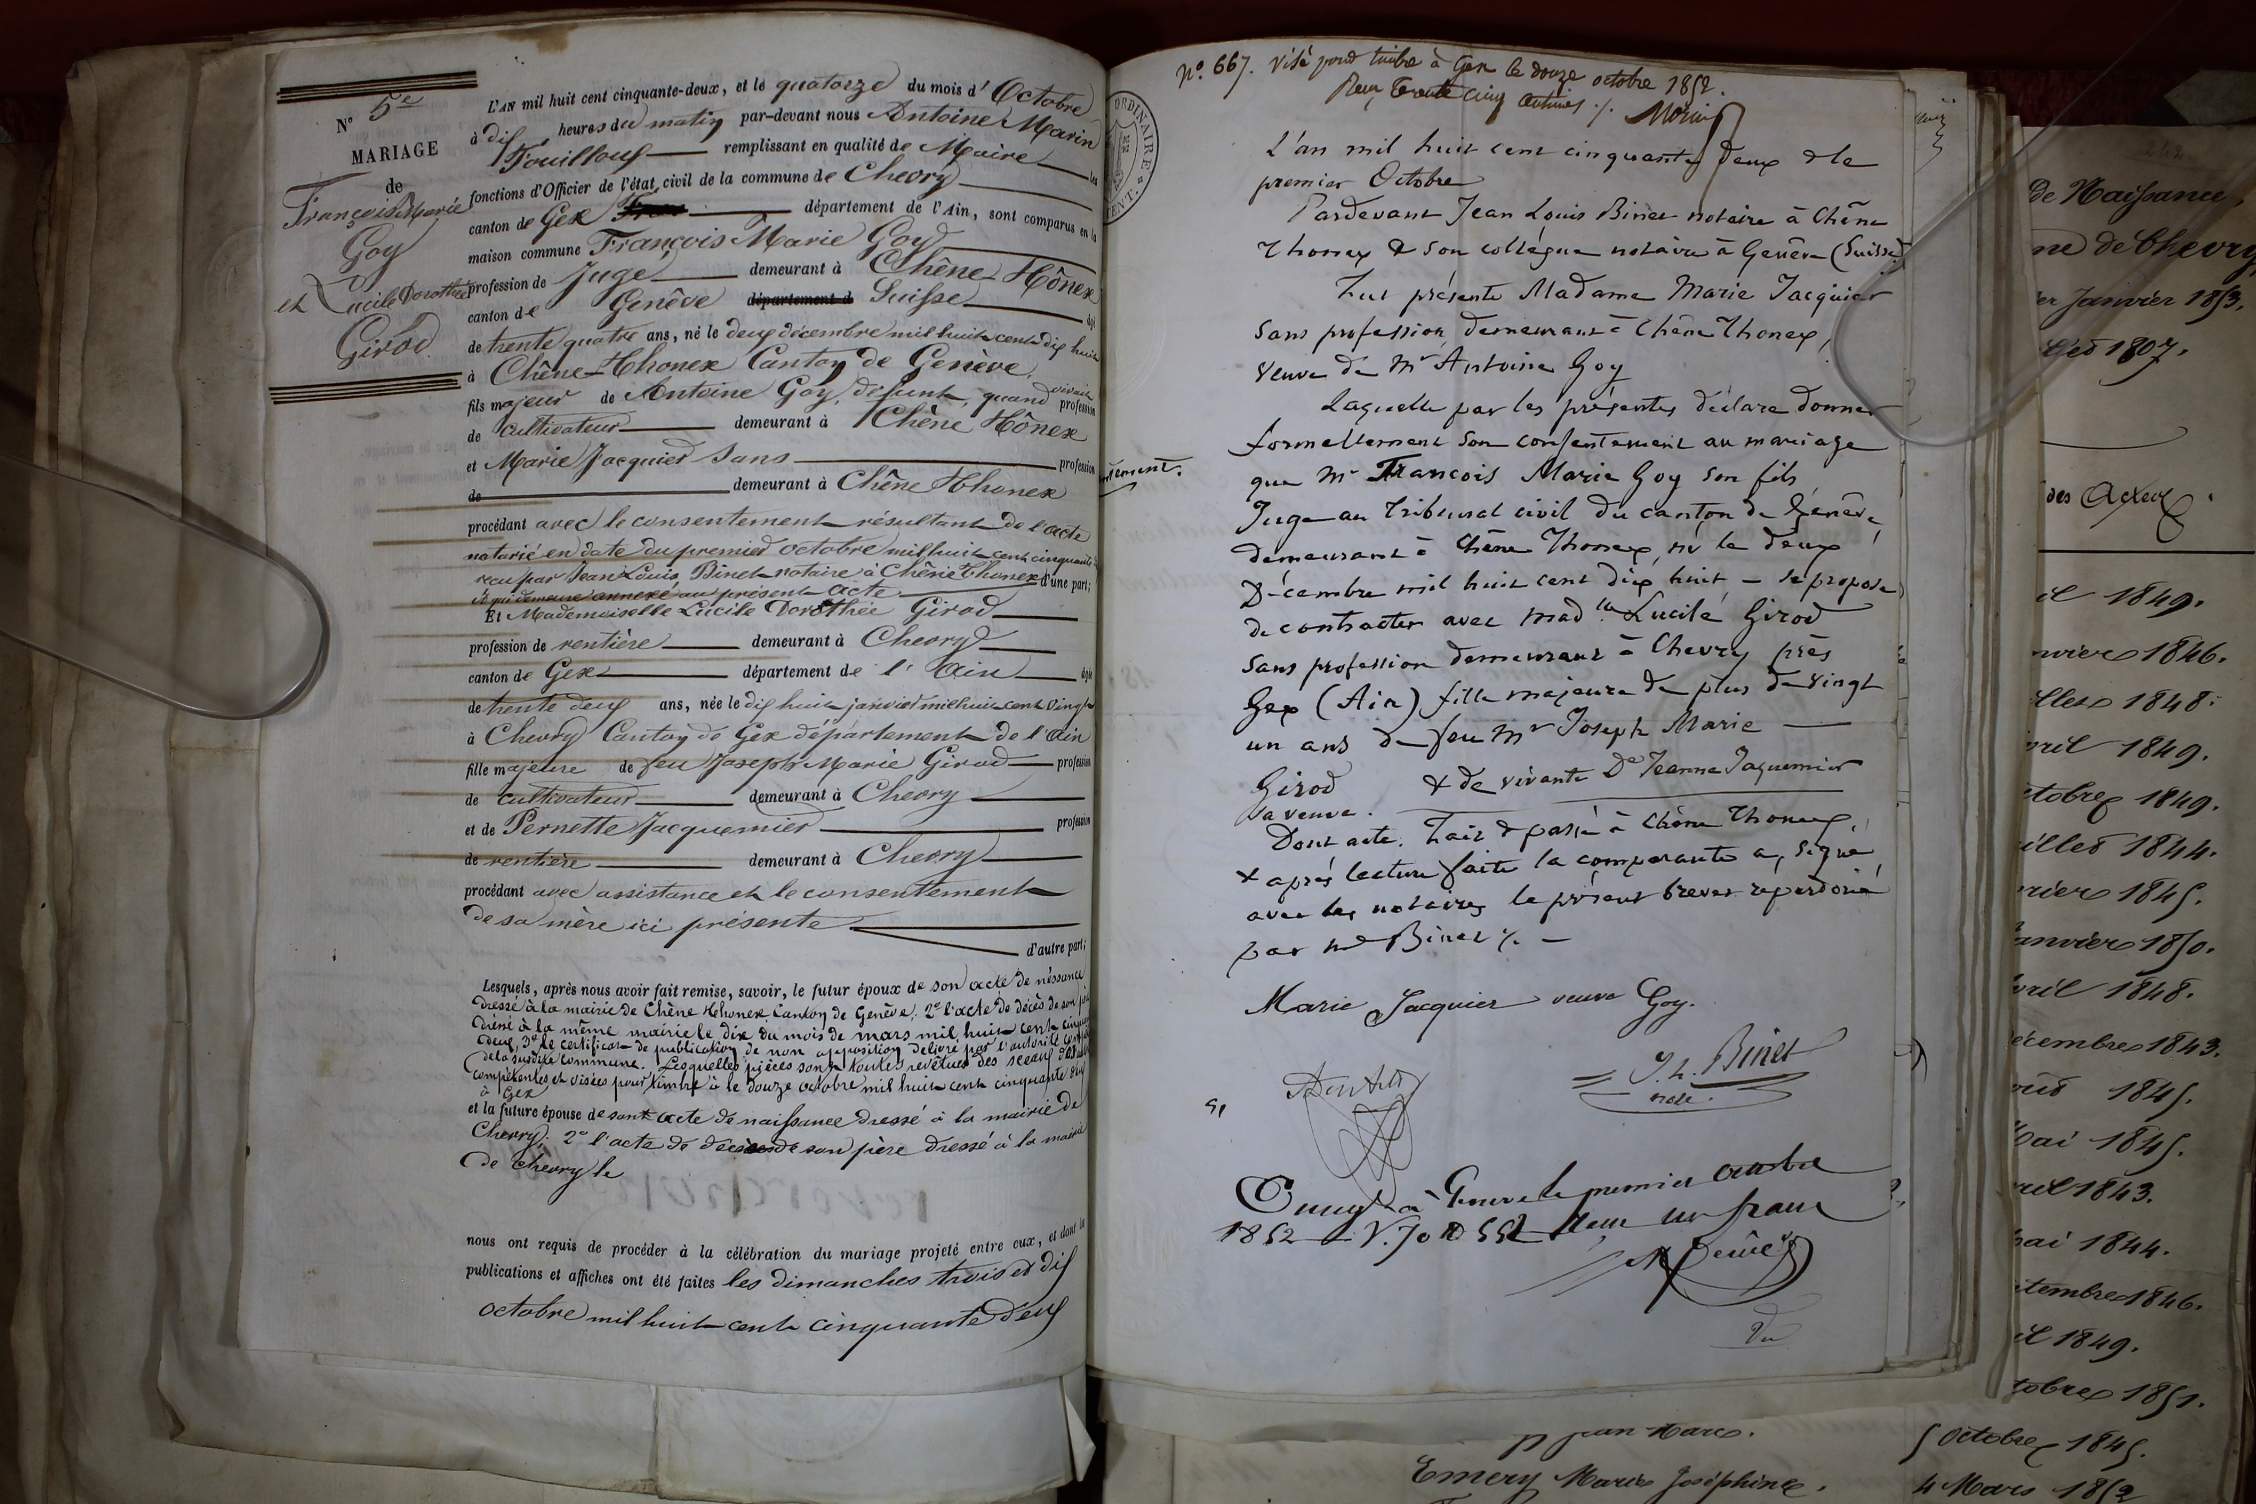 N° 5e
MARIAGE
de
François Marie
Goy
et Lucile Dorothée
Girod
L'AN mil huit cent cinquante-deux, et le quatorze du mois d'Octobre
à dix heures du matin par-devant nous Antoine Marin
Fouilloux remplissant en qualité de Maire les
fonctions d'Officier de l'état civil de la commune de Chevry
canton de Gex département de l'Ain, sont comparus en la
maison commune François Marie Goy
profession de Juge demeurant à Chêne Hônex
canton de Genève département d Suisse âgé
de trente quatre ans, né le deux décembre mil huit cent dix huit
à Chêne-Thonex Canton de Genève.
fils majeur de Antoine Goy, défunt, quand vivait profession
de cultivateur demeurant à Chêne Hônex
et Marie Jacquier sans profession
de demeurant à Chêne Thonex
procédant avec le consentement résultant de l'acte
notarié en date du premier octobre mil huit cent cinquante
reçu par Jean Louis Binet notaire à Chêne Thonex d'une part;
et qui demeure annexé au présent acte
Et Mademoiselle Lucile Dorothée Girod
profession de rentière demeurant à Chevry
canton de Gex département de l'Ain âgée
de trente deux ans, née le dix huit janvier mil huit cent vingt
à Chevry Canton de Gex département de l'Ain
fille majeure de feu Joseph Marie Girod profession
de cultivateur demeurant à Chevry
et de Pernette Jacquemier profession
de rentière demeurant à Chevry
procédant avec assistance et le consentement
de sa mère ici présente
d'autre part;
Lesquels, après nous avoir fait remise, savoir, le futur époux de son acte de néssance
dressé à la mairie de Chêne Thonex Canton de Genève; 2° l'acte de décès de son père
dressé à la même mairie le dix du mois de mars mil huit cent cinquante
deux, 3° le certificat de publication de non opposition délivré par l'autorité
de la susdite commune. Lesquelles pièces sont toutes revêtues des sceaux
compétentes et visées pour timbre à le douze octobre mil huit cent cinquante deux
à Gex
et la future épouse de sont acte de naissance dressé à la mairie de
Chevry; 2° l'acte de décès de son père dressé à la mairie
de Chevry le
nous ont requis de procéder à la célébration du mariage projeté entre eux, et dont la
publications et affiches ont été faites les dimanches trois et dix
octobre mil huit cent cinquante deux
ORDINAIRE
N°. 667. Visé pour timbre à Gex le douze octobre 1852.
Reçu trente cinq centimes ./. Morin
L'an mil huit cent cinquante deux & le
premier Octobre
Pardevant Jean Louis Binet notaire à Chêne
Thonex & son collègue notaire à Genève (Suisse)
Fut présente Madame Marie Jacquier
sans profession, demeurant à Chêne Thonex,
veuve de Mr Antoine Goy
Laquelle par les présentes déclare donner
formellement son consentement au mariage
que Mr François Marie Goy son fils
Juge au Tribunal civil du canton de Genève,
demeurant à Chêne Thonex, né le deux
Décembre mil huit cent dix huit – se propose
de contracter avec Mad.lle Lucile Girod
sans profession demeurant à Chevry près
Gex (Ain) fille majeure de plus de vingt
un ans de feu Mr Joseph Marie
Girod & de vivante De Jeanne Jaquemier
sa veuve.
Dont acte. Fait & passé à Chêne Thonex,
& après lecture faite la comparante a signé
avec les notaires le présent brevet répertorié
par Me Binet ./. –
Marie Jacquier veuve Goy.
J. L. Binet
note.
Enregt à Genève le premier octobre
1852 un franc
de Naissance,
ne de Chevry
er Janvier 1853.
1807.
des Actes
il 1849.
nvier 1846.
illet 1848.
vril 1849.
ctobre 1849.
illet 1844.
vrier 1845.
anvier 1850.
vril 1848.
écembre 1843.
1845.
Mai 1845.
ril 1843.
ai 1844.
tembre 1846.
il 1849.
tobre 1851.
Jean Marc.
5 Octobre 1845.
Emery Marie Joséphine.
4 Mars 1852